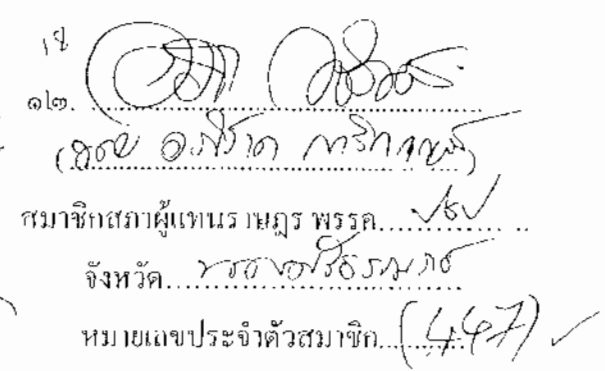 ๑๒.
(นาย อภิชาต การิกาญจน์)
สมาชิกสภาผู้แทนราษฎร พรรค ปชป
จังหวัด นครศรีธรรมราช
หมายเลขประจำตัวสมาชิก (447)